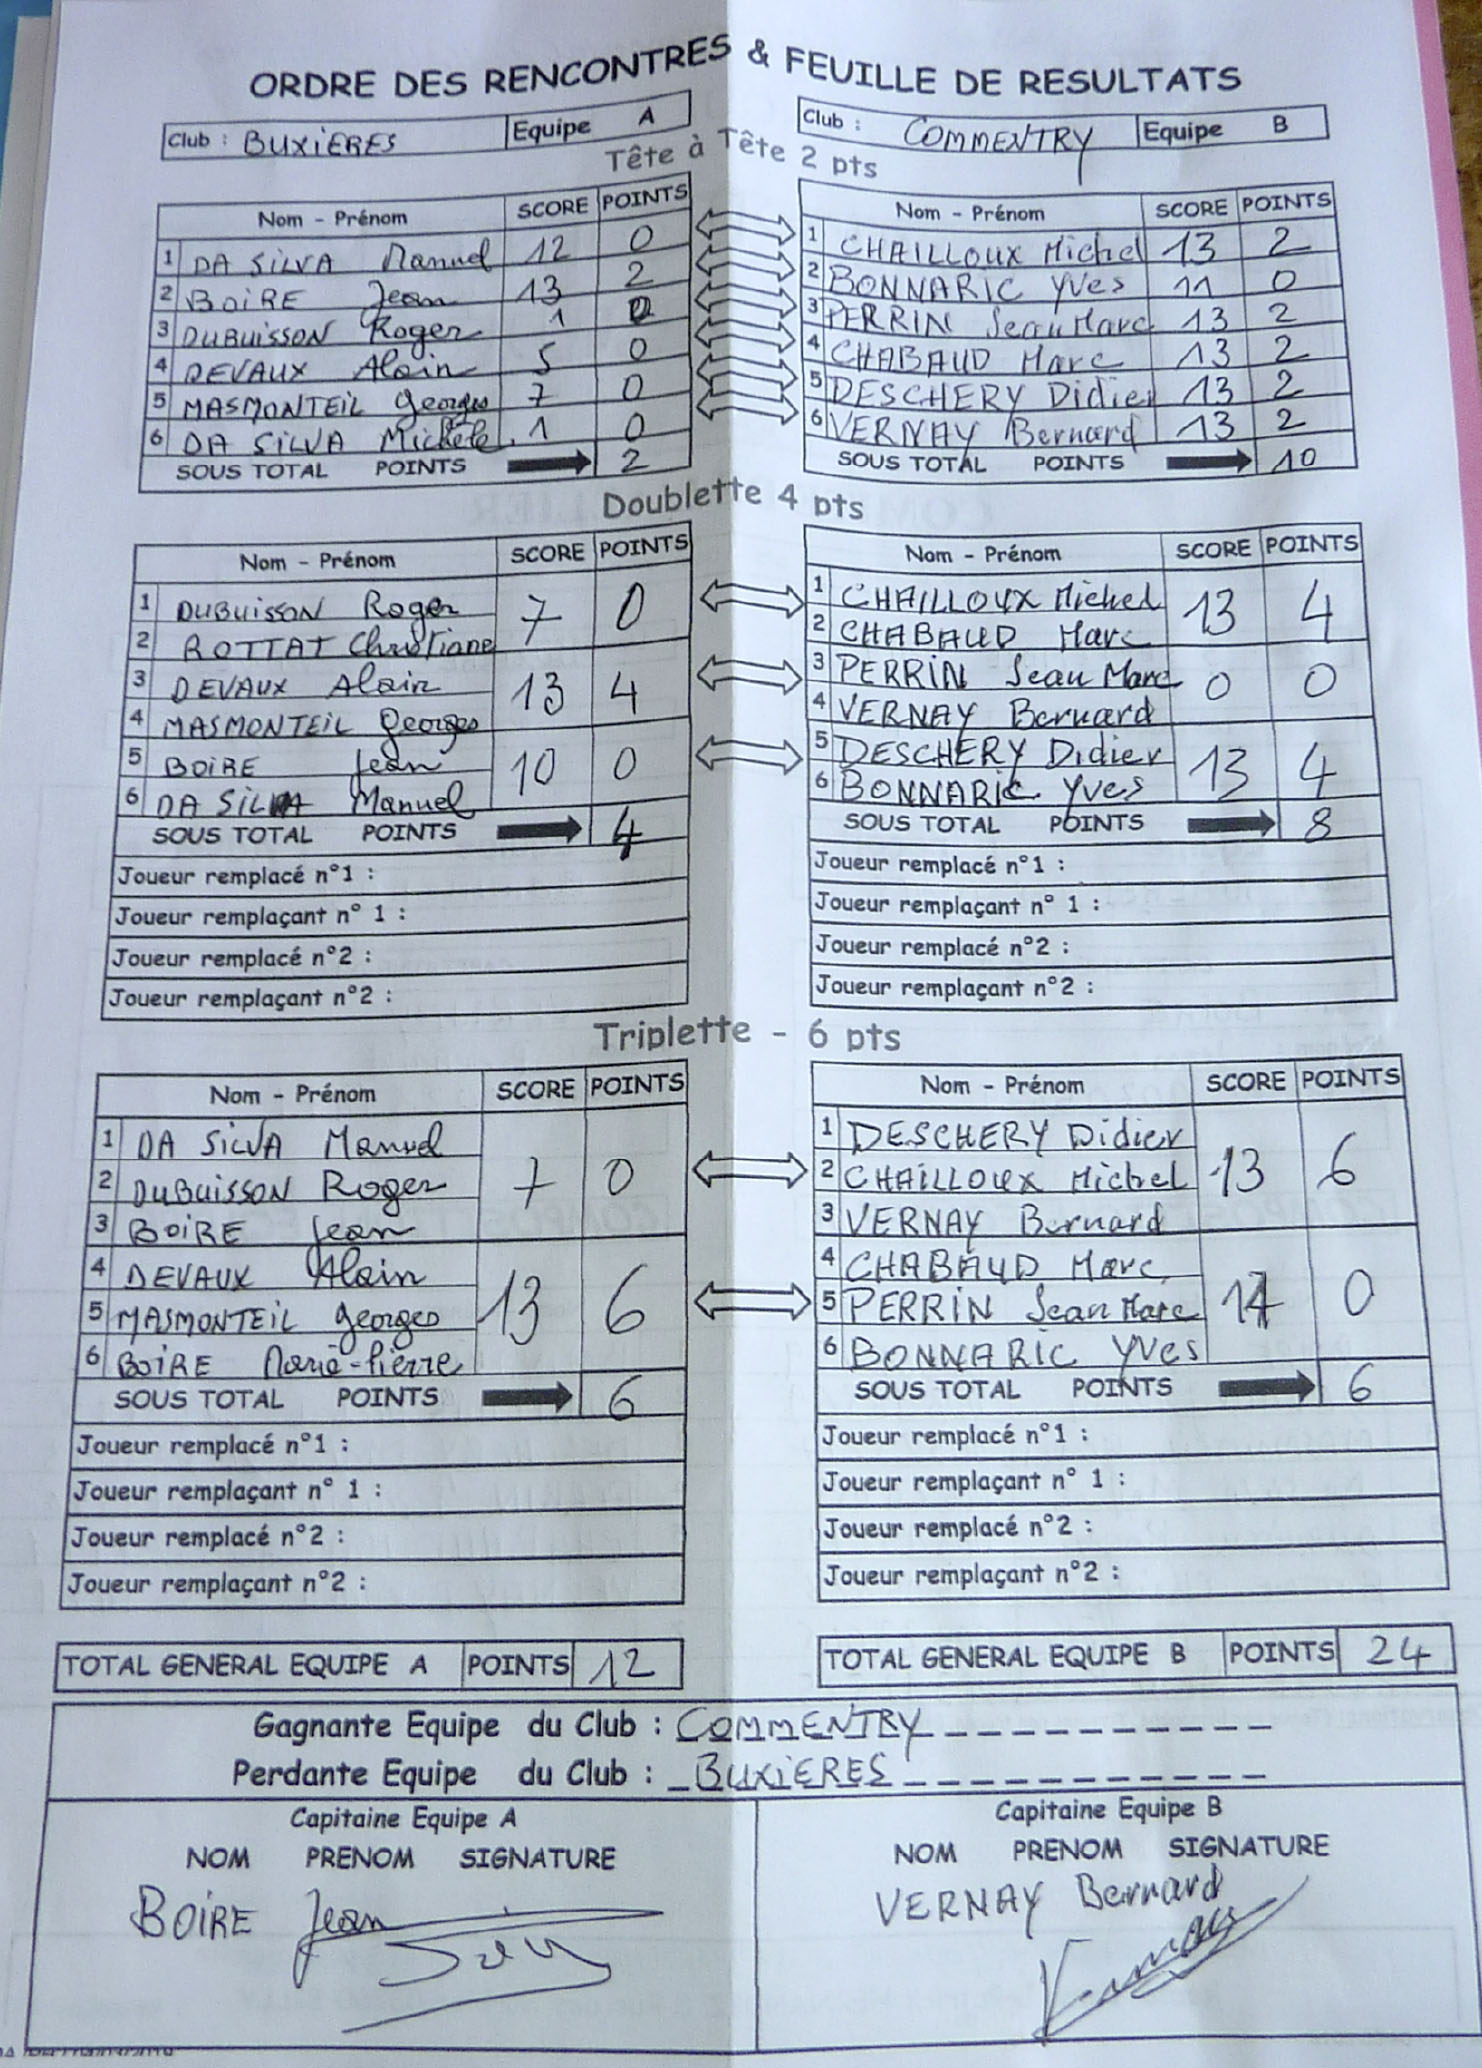 ORDRE DES RENCONTRES & FEUILLE DE RESULTATS
Club : BUXIERES Equipe A
Club : COMMENTRY Equipe B
Tête à Tête 2 pts
Nom - Prénom SCORE POINTS
1 DA SILVA Manuel 12 0
2 BOIRE Jean 13 2
3 DUBUISSON Roger 1 0
4 DEVAUX Alain 5 0
5 MASMONTEIL Georges 7 0
6 DA SILVA Michèle 1 0
SOUS TOTAL POINTS 2
Nom - Prénom SCORE POINTS
1 CHAILLOUX Michel 13 2
2 BONNARIC Yves 11 0
3 PERRIN Jean Marc 13 2
4 CHABAUD Marc 13 2
5 DESCHERY Didier 13 2
6 VERNAY Bernard 13 2
SOUS TOTAL POINTS 10
Doublette 4 pts
Nom - Prénom SCORE POINTS
1 DUBUISSON Roger 7 0
2 ROTTAT Christiane
3 DEVAUX Alain 13 4
4 MASMONTEIL Georges
5 BOIRE Jean 10 0
6 DA SILVA Manuel
SOUS TOTAL POINTS 4
Joueur remplacé n°1 :
Joueur remplaçant n° 1 :
Joueur remplacé n°2 :
Joueur remplaçant n°2 :
Nom - Prénom SCORE POINTS
1 CHAILLOUX Michel 13 4
2 CHABAUD Marc
3 PERRIN Jean Marc 0 0
4 VERNAY Bernard
5 DESCHERY Didier 13 4
6 BONNARIC Yves
SOUS TOTAL POINTS 8
Joueur remplacé n°1 :
Joueur remplaçant n° 1 :
Joueur remplacé n°2 :
Joueur remplaçant n°2 :
Triplette - 6 pts
Nom - Prénom SCORE POINTS
1 DA SILVA Manuel
2 DUBUISSON Roger 7 0
3 BOIRE Jean
4 DEVAUX Alain
5 MASMONTEIL Georges 13 6
6 BOIRE Marie-Pierre
SOUS TOTAL POINTS 6
Joueur remplacé n°1 :
Joueur remplaçant n° 1 :
Joueur remplacé n°2 :
Joueur remplaçant n°2 :
Nom - Prénom SCORE POINTS
1 DESCHERY Didier
2 CHAILLOUX Michel 13 6
3 VERNAY Bernard
4 CHABAUD Marc
5 PERRIN Jean Marc 0
6 BONNARIC Yves
SOUS TOTAL POINTS 6
Joueur remplacé n°1 :
Joueur remplaçant n° 1 :
Joueur remplacé n°2 :
Joueur remplaçant n°2 :
TOTAL GENERAL EQUIPE A POINTS 12
TOTAL GENERAL EQUIPE B POINTS 24
Gagnante Equipe du Club : COMMENTRY
Perdante Equipe du Club : BUXIERES
Capitaine Equipe A
NOM PRENOM SIGNATURE
BOIRE Jean
Capitaine Equipe B
NOM PRENOM SIGNATURE
VERNAY Bernard